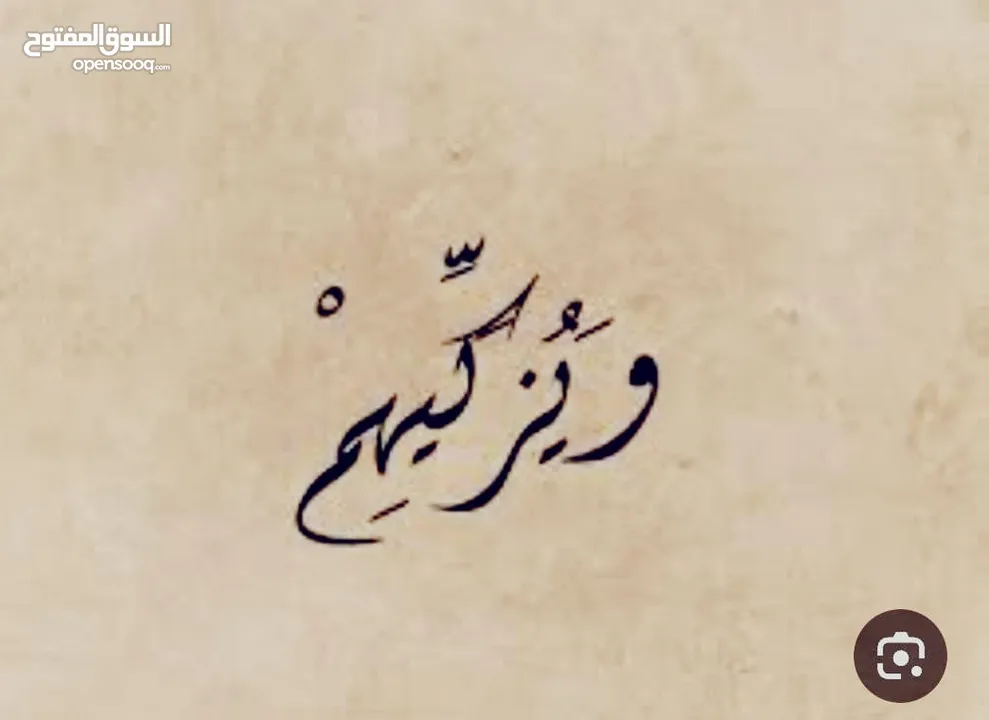 السوق المفتوح
opensooq.com
وَيُزكِّيهِمْ